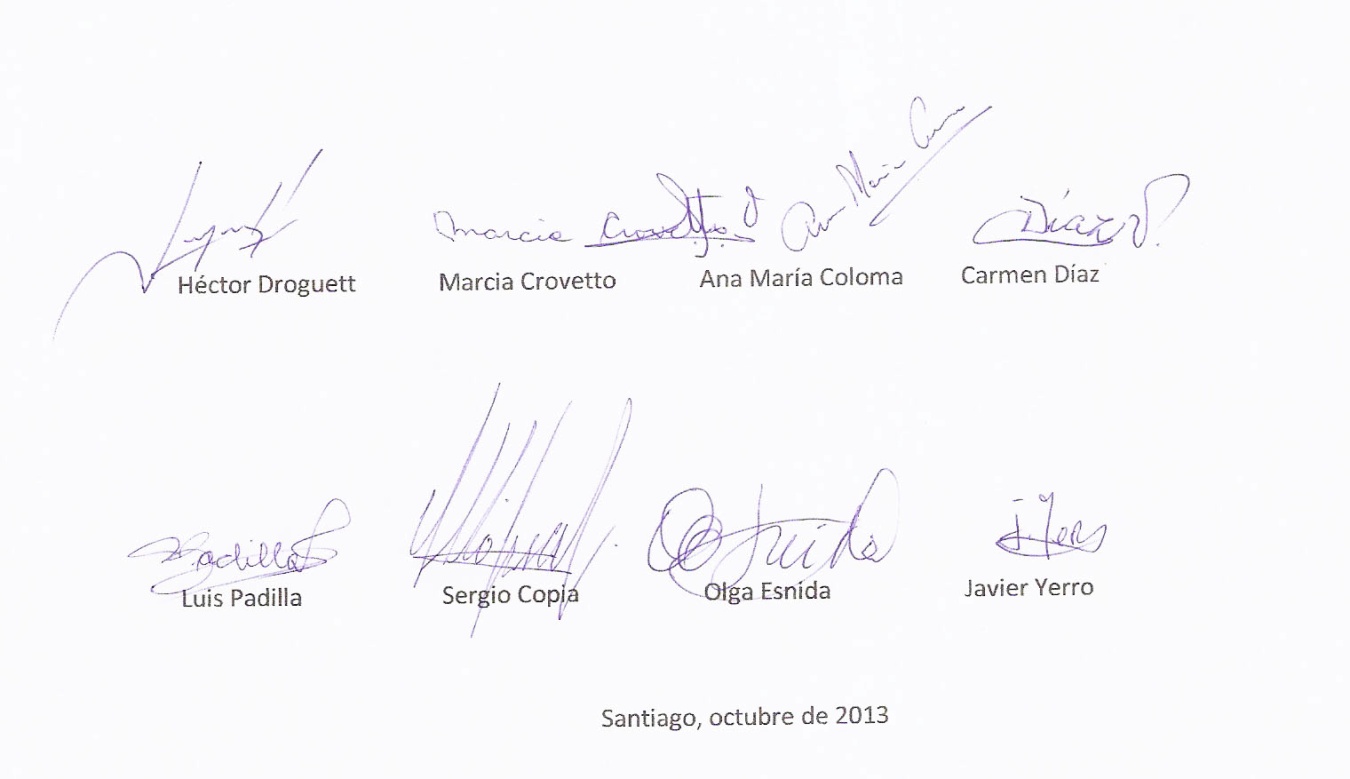 Marcia Crovetto
Ana María
Díaz
Héctor Droguett Marcia Crovetto Ana María Coloma Carmen Díaz
Padilla
Luis Padilla Sergio Copia Olga Esnida Javier Yerro
Santiago, octubre de 2013